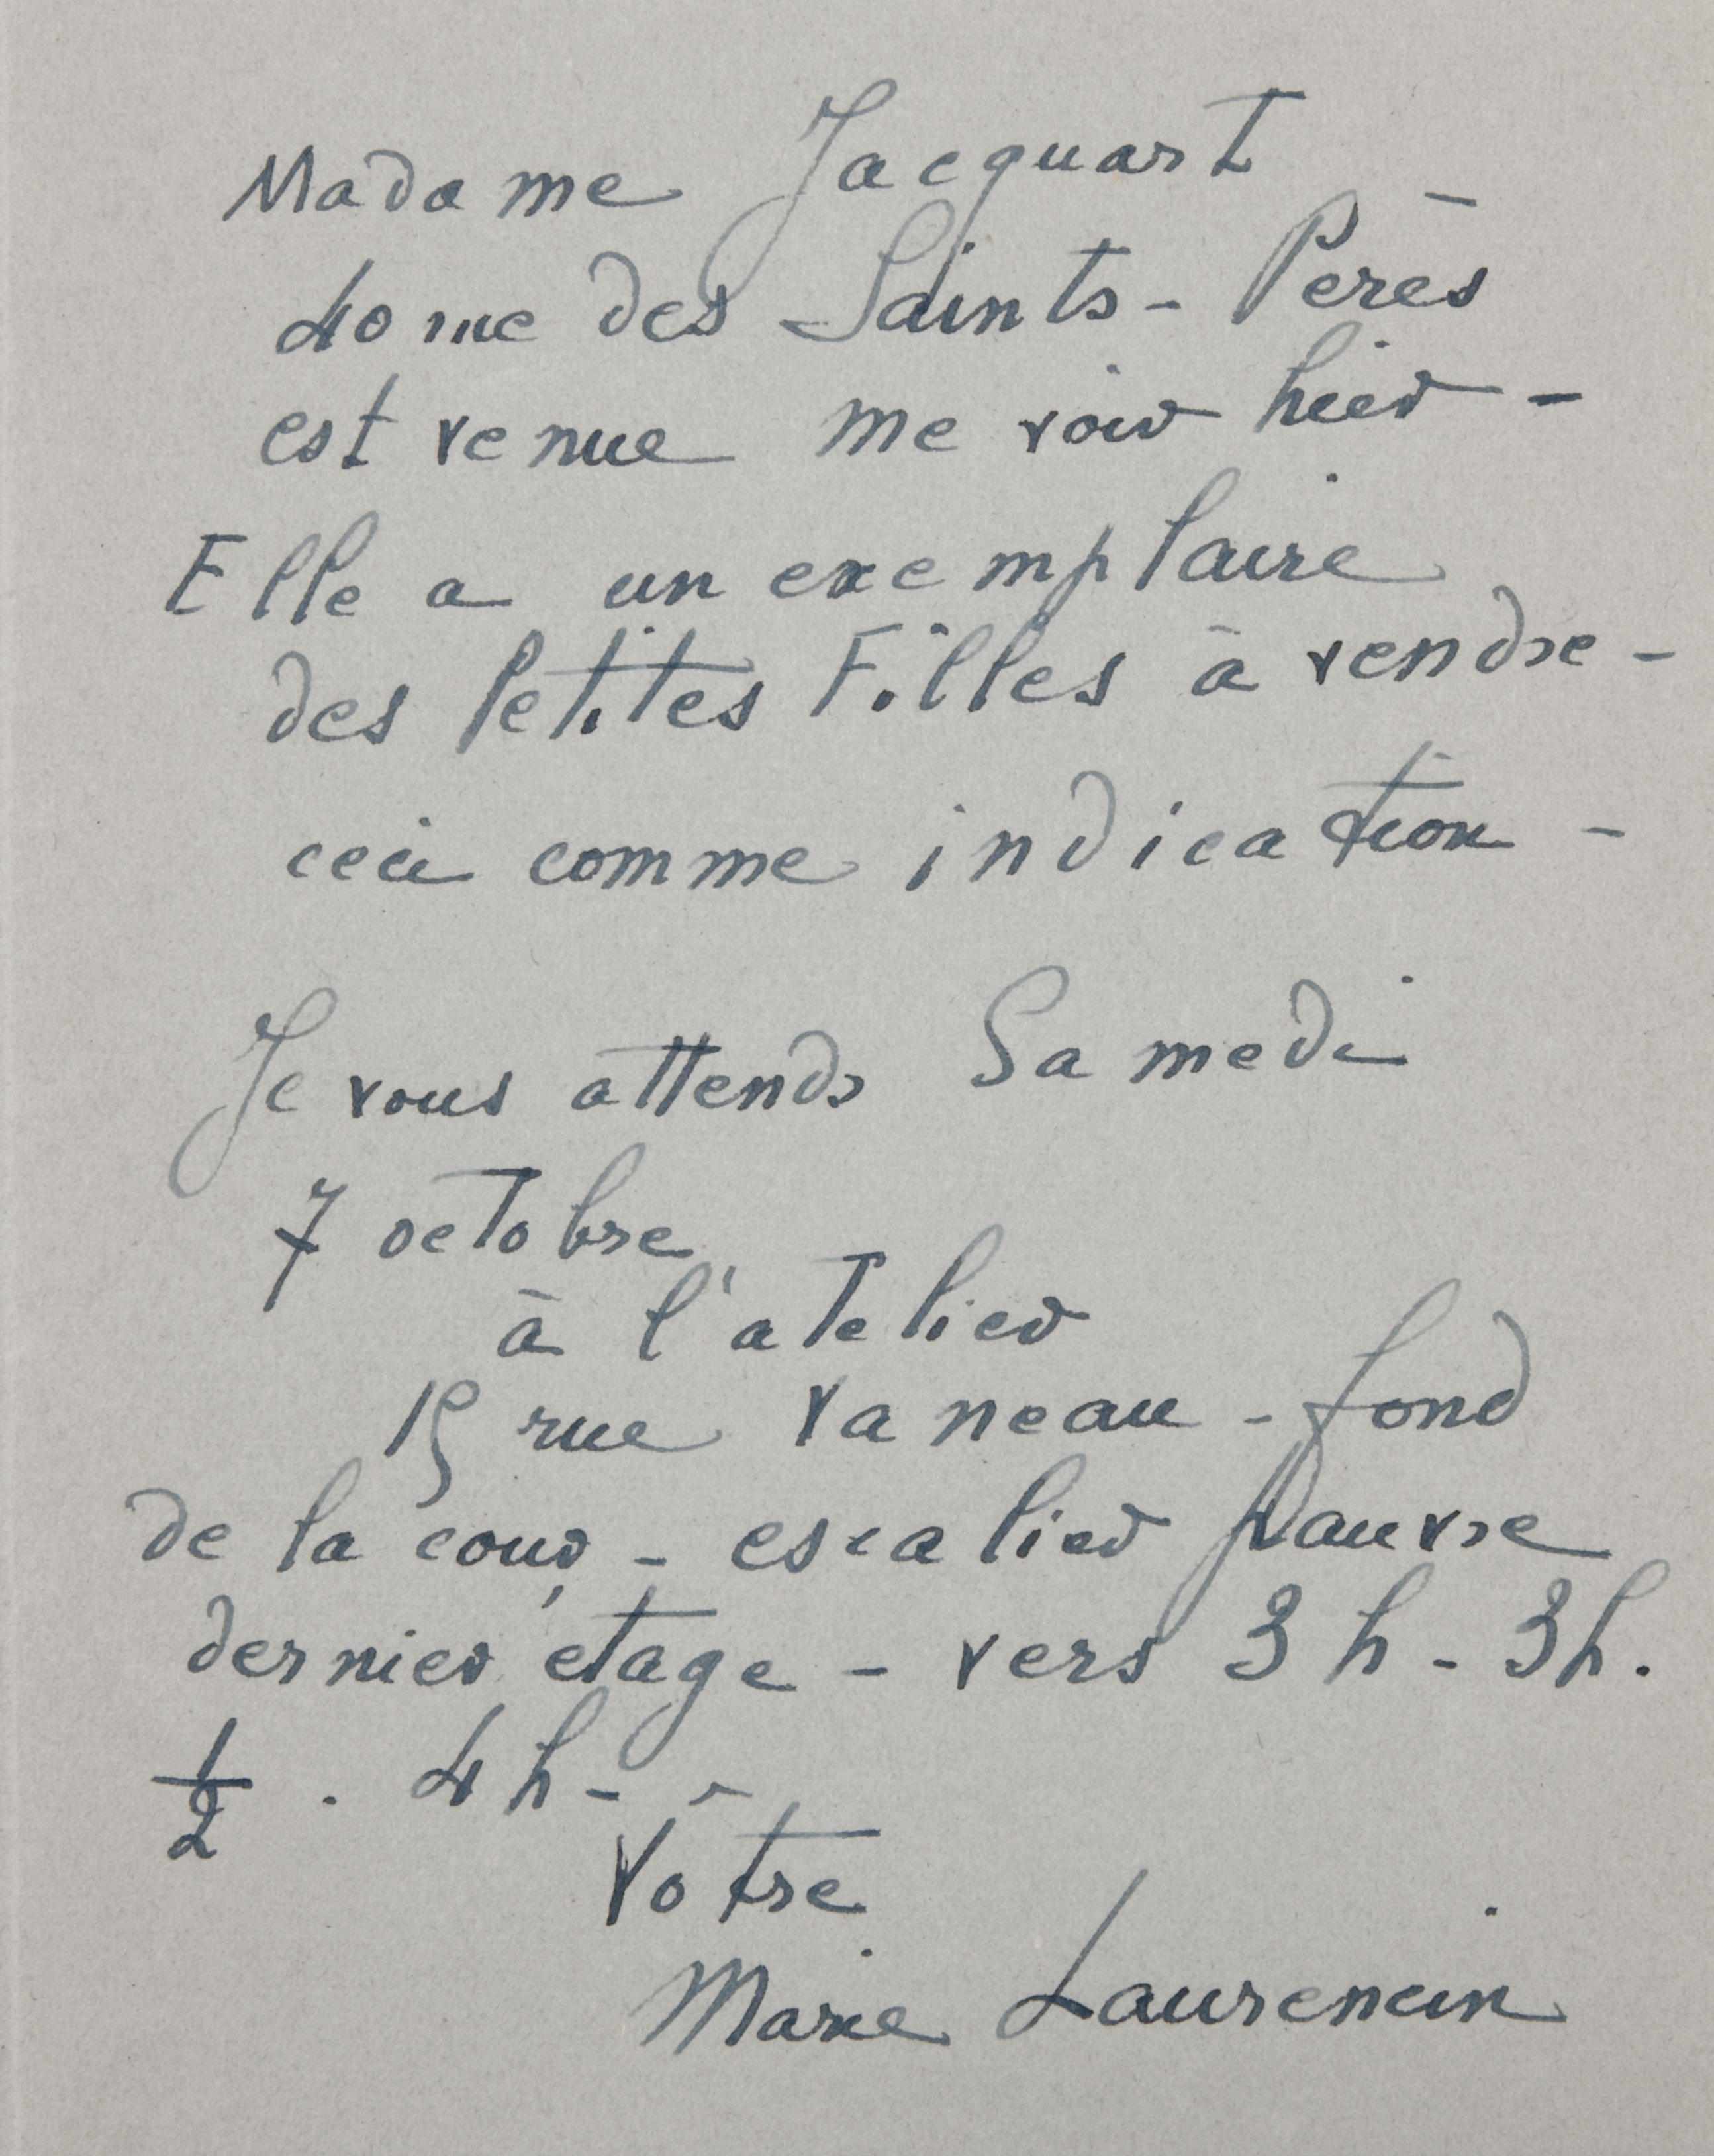 Madame Jacquart
40 rue des Saints-Pères
est venue me voir hier -
Elle a un exemplaire
des Petites Filles à vendre -
ceci comme indication -
Je vous attends Samedi
7 octobre
à l'atelier
15 rue Vaneau - fond
de la cour - escalier pauvre
dernier étage - vers 3 h - 3h.
1/2 . 4 h -
Vôtre
Marie Laurencin